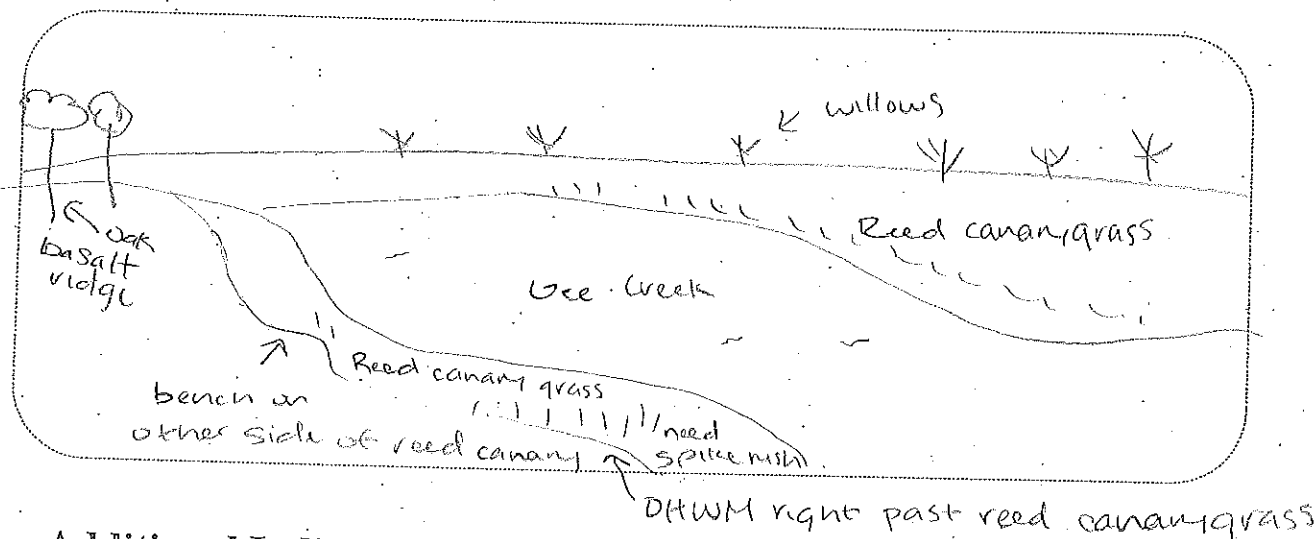 willows
Reed canarygrass
oak
basalt
ridge
Gee Creek
Reed canary grass
bench on
other side of reed canary
need
spikerush
OHWM right past reed canarygrass